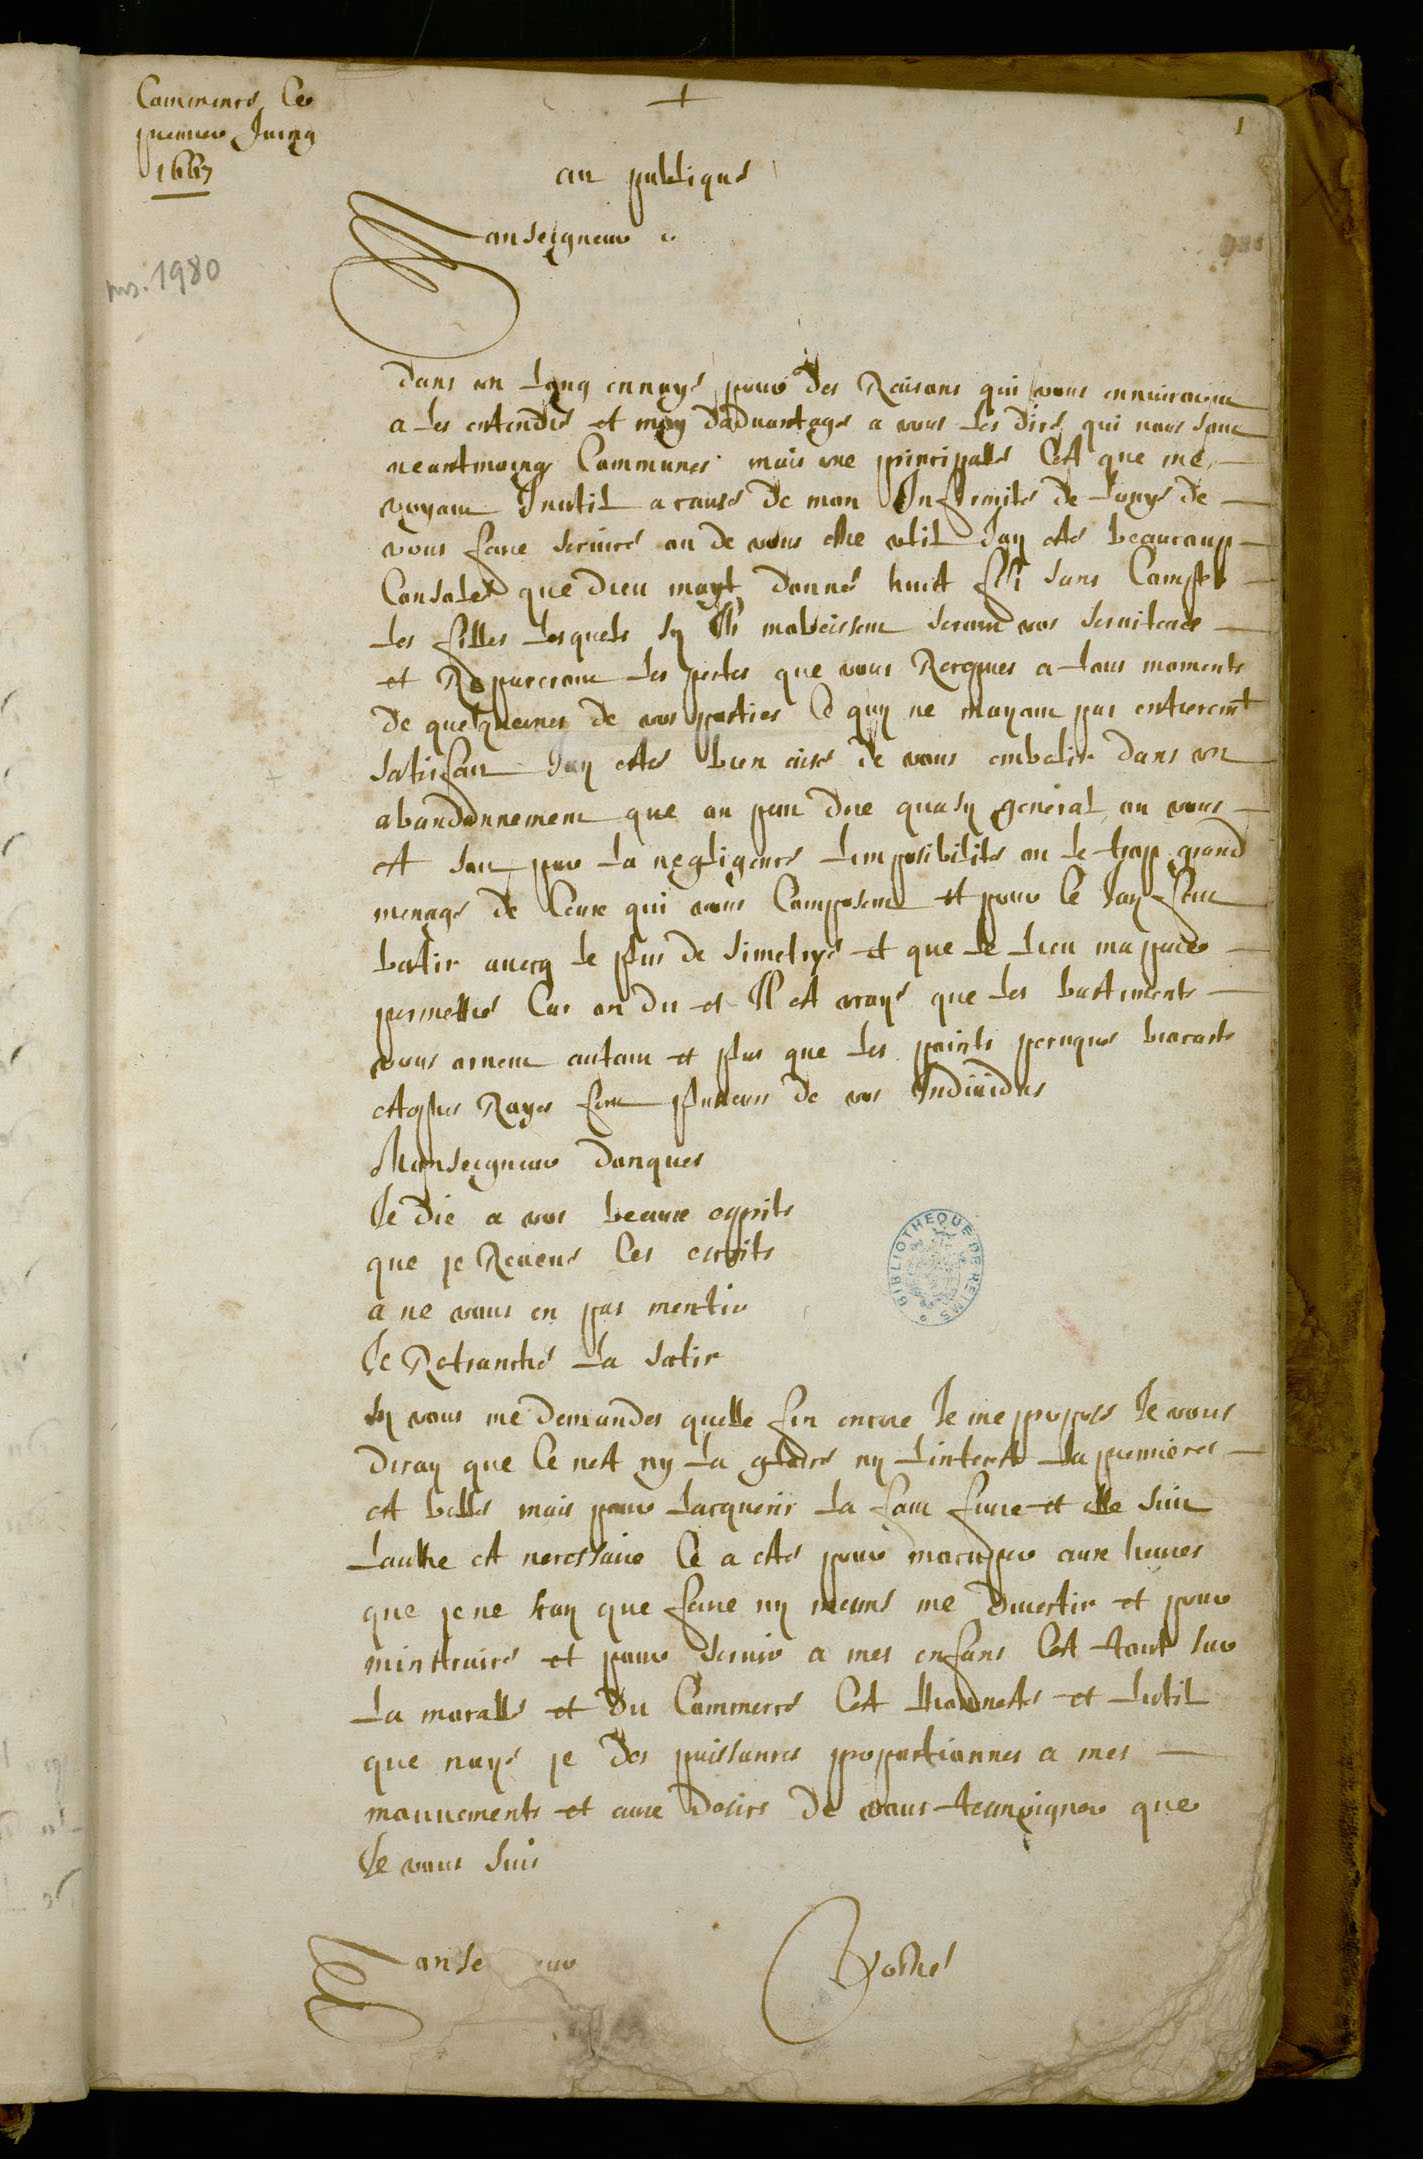 Commencé Ce
premier Juing
1667
ms. 1980
1
au publique
Monseigneur
dans un Long ennuye pour des Raisons qui vous ennuiroient
a Les entendre et moy dadvantage a vous Les dire qui nous sont
neantmoings Communes mais une principalle C'est que me
voyant Inutil a cause de mon Infirmité de Louye de
vous faire service ou de vous estre util Jay esté beaucoup
Consolé que Dieu mayt donné huit fils sans Compter
Les filles Lesquels sy Ils mobeissent seront vos serviteurs
et Repareront Les pertes que vous Recepves a tous moments
de quelquunes de vos parties Ce quy ne mayant pas entierement
satisfait Jay esté bien aise de vous embelir dans un
abandonnement que on peut dire quasy general ou vous
est soit par La negligence Limposibilité ou Le trop grand
menage de Ceux qui vous Composent et pour Ce Jay fait
batir avecq Le plus de simetrye et que Le Lieu ma peu
permettre Car on dit et Il est vraye que Les bastiments
vous ornent autant et plus que Les points peruques brocarts
Rayes font plusieurs de vos Individus
Monseigneur donques
Je die a vos beaux esprits
que je Revens Ces escrits
a ne vous en pas mentir
Je Retranche La satir
Sy vous me demandes quelle fin encore Je me propose Je vous
diray que Ce nest ny La gloire ny Linterest La premiere
est belle mais pour Lacquerir La faut fuire et elle suit
Lautre est necessaire Ce a esté pour mocuper aux heures
que je ne scay que faire ny me divertir et pour
minstruire et pour servir a mes enfans Cest tout sur
La moralle et du Commerce Cest Lhonneste et Lutil
que naye je des puissances proportionnes a mes
mouvements et aux desirs de vous temoigner que
Je vous suis
Vostre